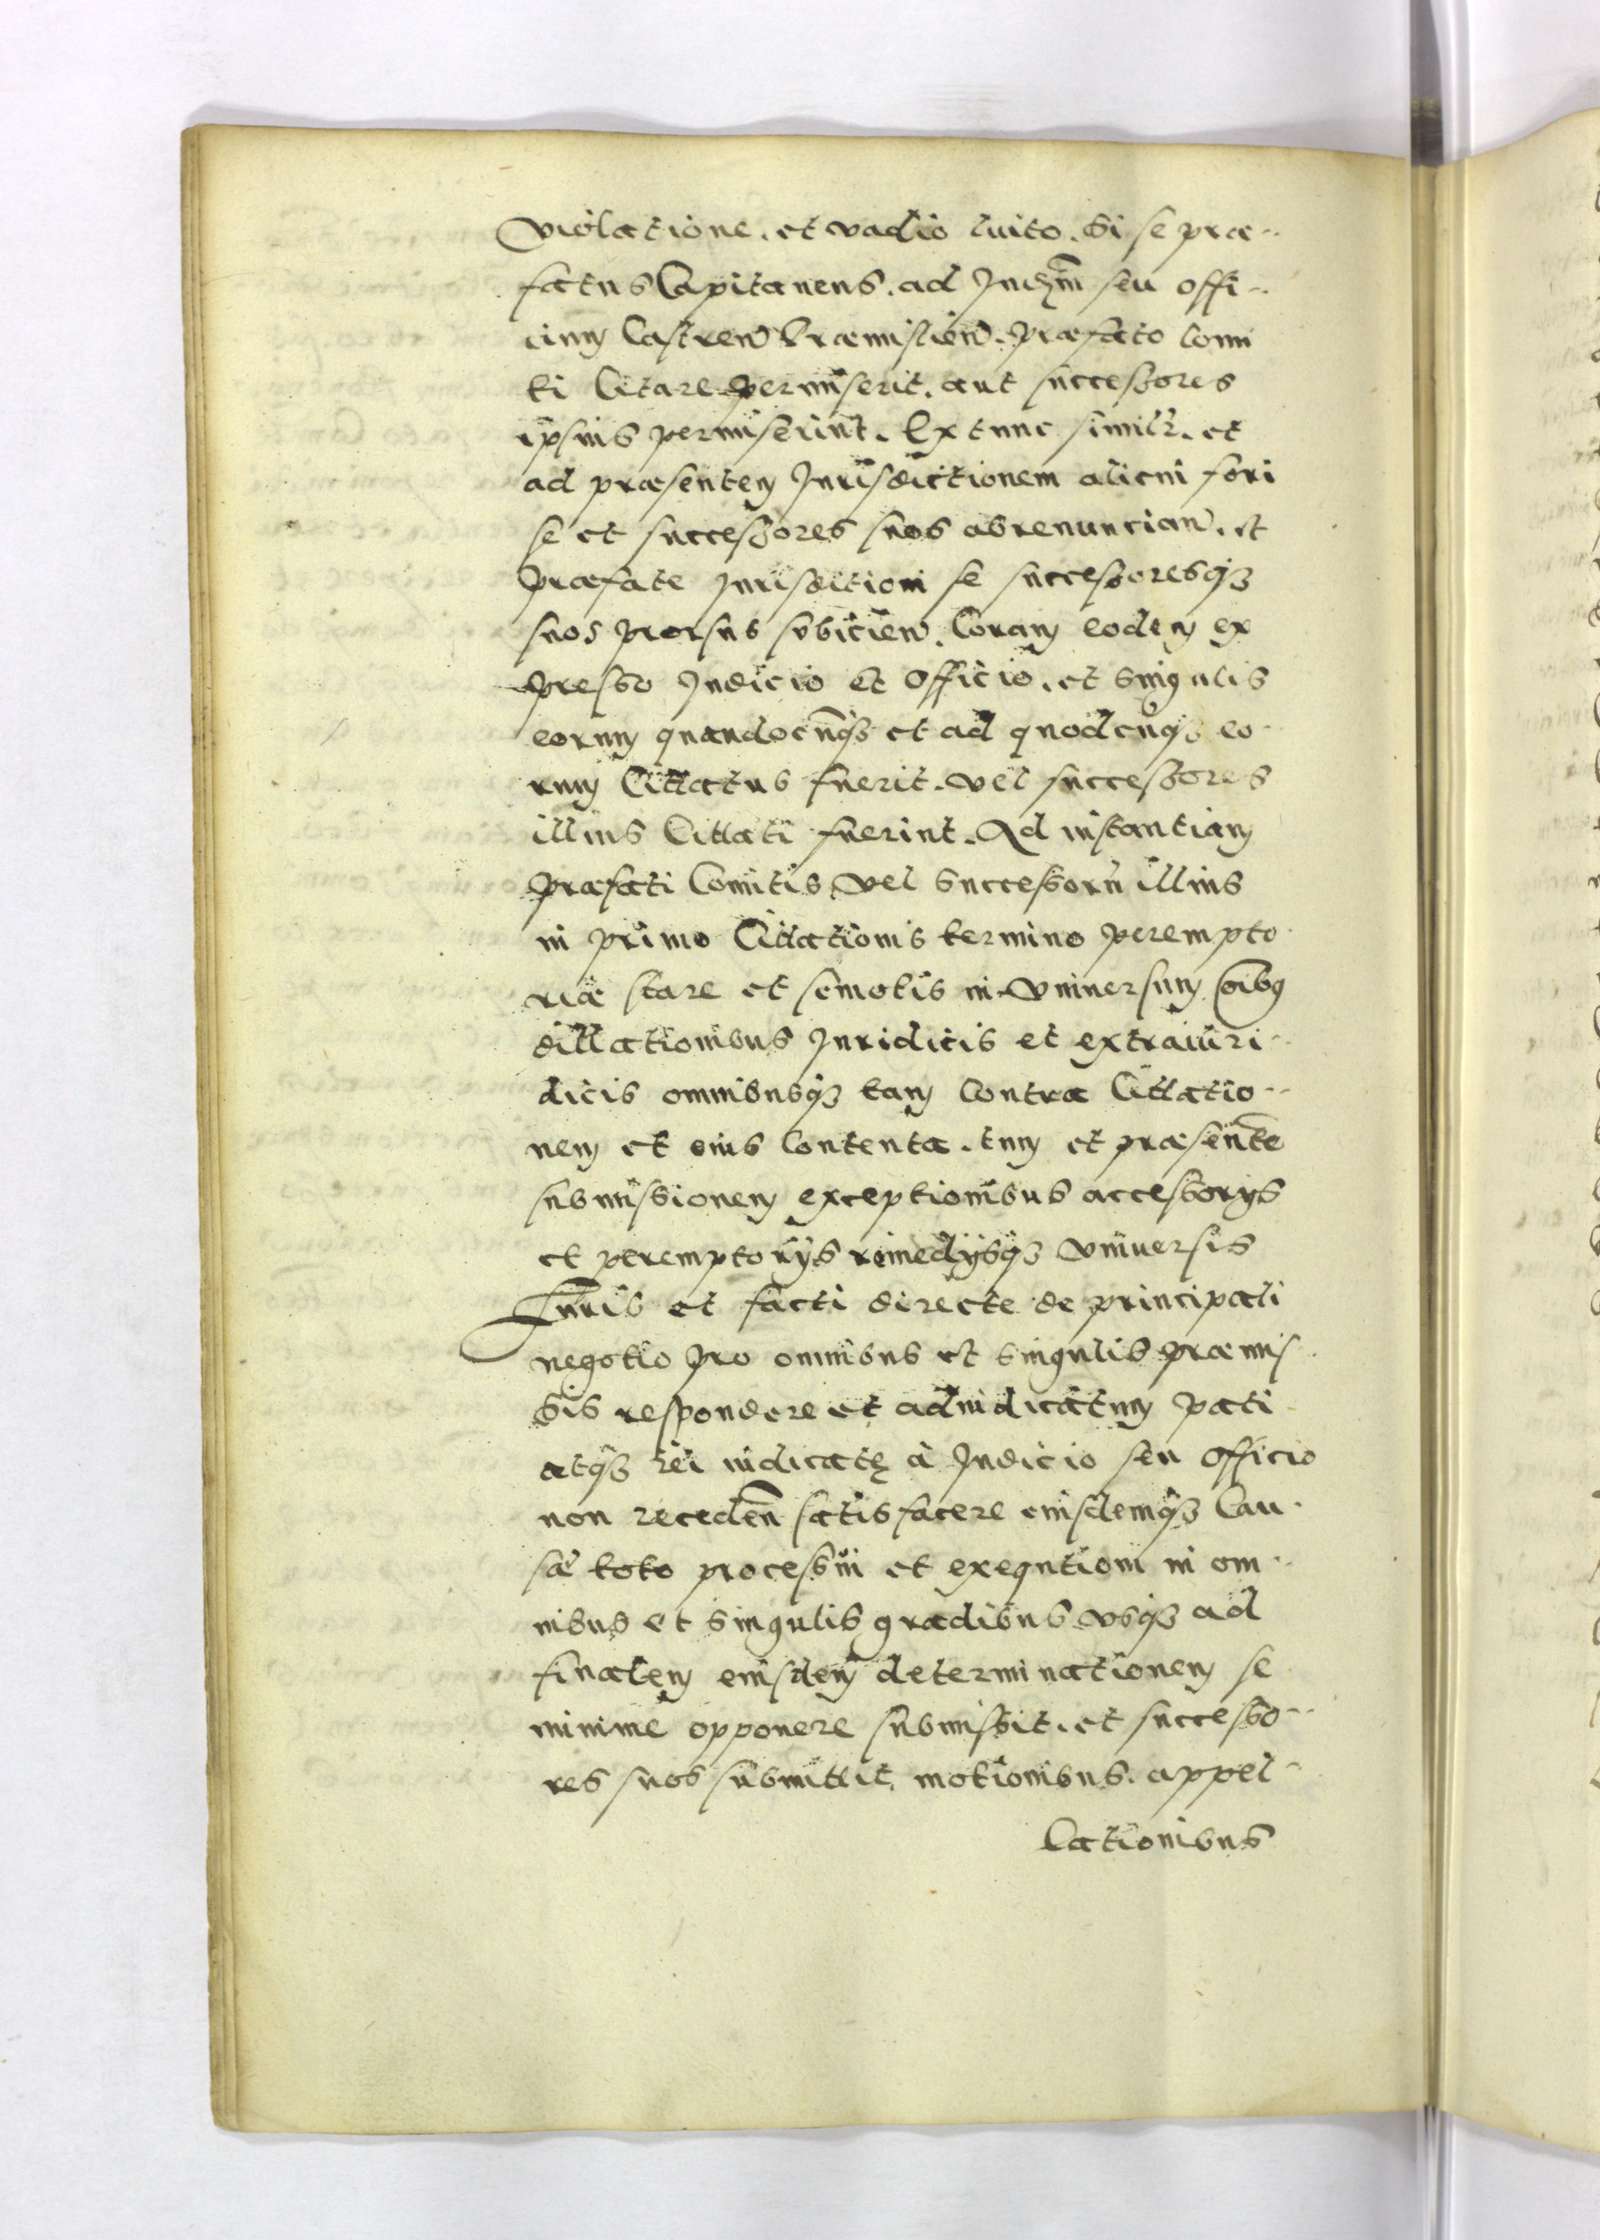 violatione. et vadio luito. Si se præ-
fatus Capitaneus. ad Judm̄ seu offi-
cium Castren̄ Cræmislien̄. præfato Comi
ti Citare permiserit. aut successores
ipsius permiserint. Ex tunc similr. et
ad præsentem Jurisdictionem alicui fori
se et successores suos abrenuncian̄. et
præfate jurisdictioni se successoresq3
suos prorsus subicien̄. Coram eodem ex
presso Judicio et Officio. et singulis
eorum quandocunq3 et ad quodcūq3 eo-
rum Cittatus fuerit. vel successores
illius Cittati fuerint. Ad instantiam
præfati Comitis vel Successorū illius
in primo Cittationis termino perempto
riæ stare et semotis in vniuersum oībꝰ
dillationibus Juridicis et extraiuri-
dicis omnibusq3 tam contra Cittatio-
nem et eius contenta. tum et præsente
submissionem exceptionibus accessorys
et peremptorijs remedijsq3 vniuersis
Juris et facti directe de principali
negotio pro omnibus et singulis præmis
sis respondere et adiudicatum pati
atq3 rei iudicatę à Judicio seu Officio
non receden̄ satisfacere eiusdemq3 Cau-
sæ toto processui et exequtioni in om-
nibus et singulis gradibus vsq3 ad
finalem eiusdem determinationem se
minime opponere submissit. et successo-
res suos submittit. motionibus. appel-
lationibus